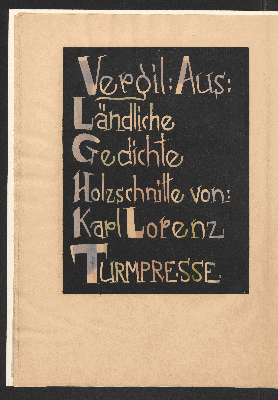 Vergil: Aus:
Ländliche
Gedichte
Holzschnitte von:
Karl Lorenz
TURMPRESSE